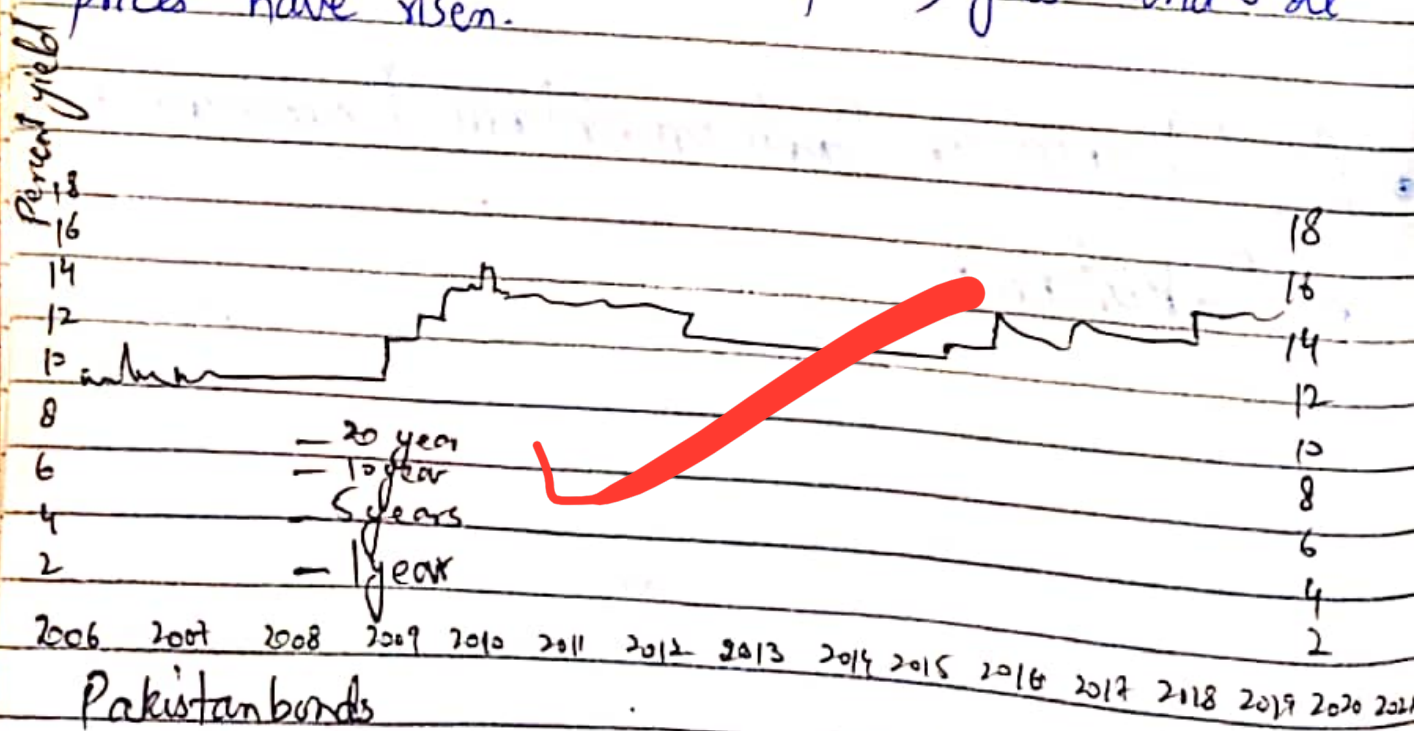 prices have risen.
Percent yield
18
16
14
12
10
8
6
4
2
18
16
14
12
10
8
6
4
2
– 20 year
– 10 year
– 5 years
– 1 year
2006 2007 2008 2009 2010 2011 2012 2013 2014 2015 2016 2017 2018 2019 2020 2021
Pakistan bonds